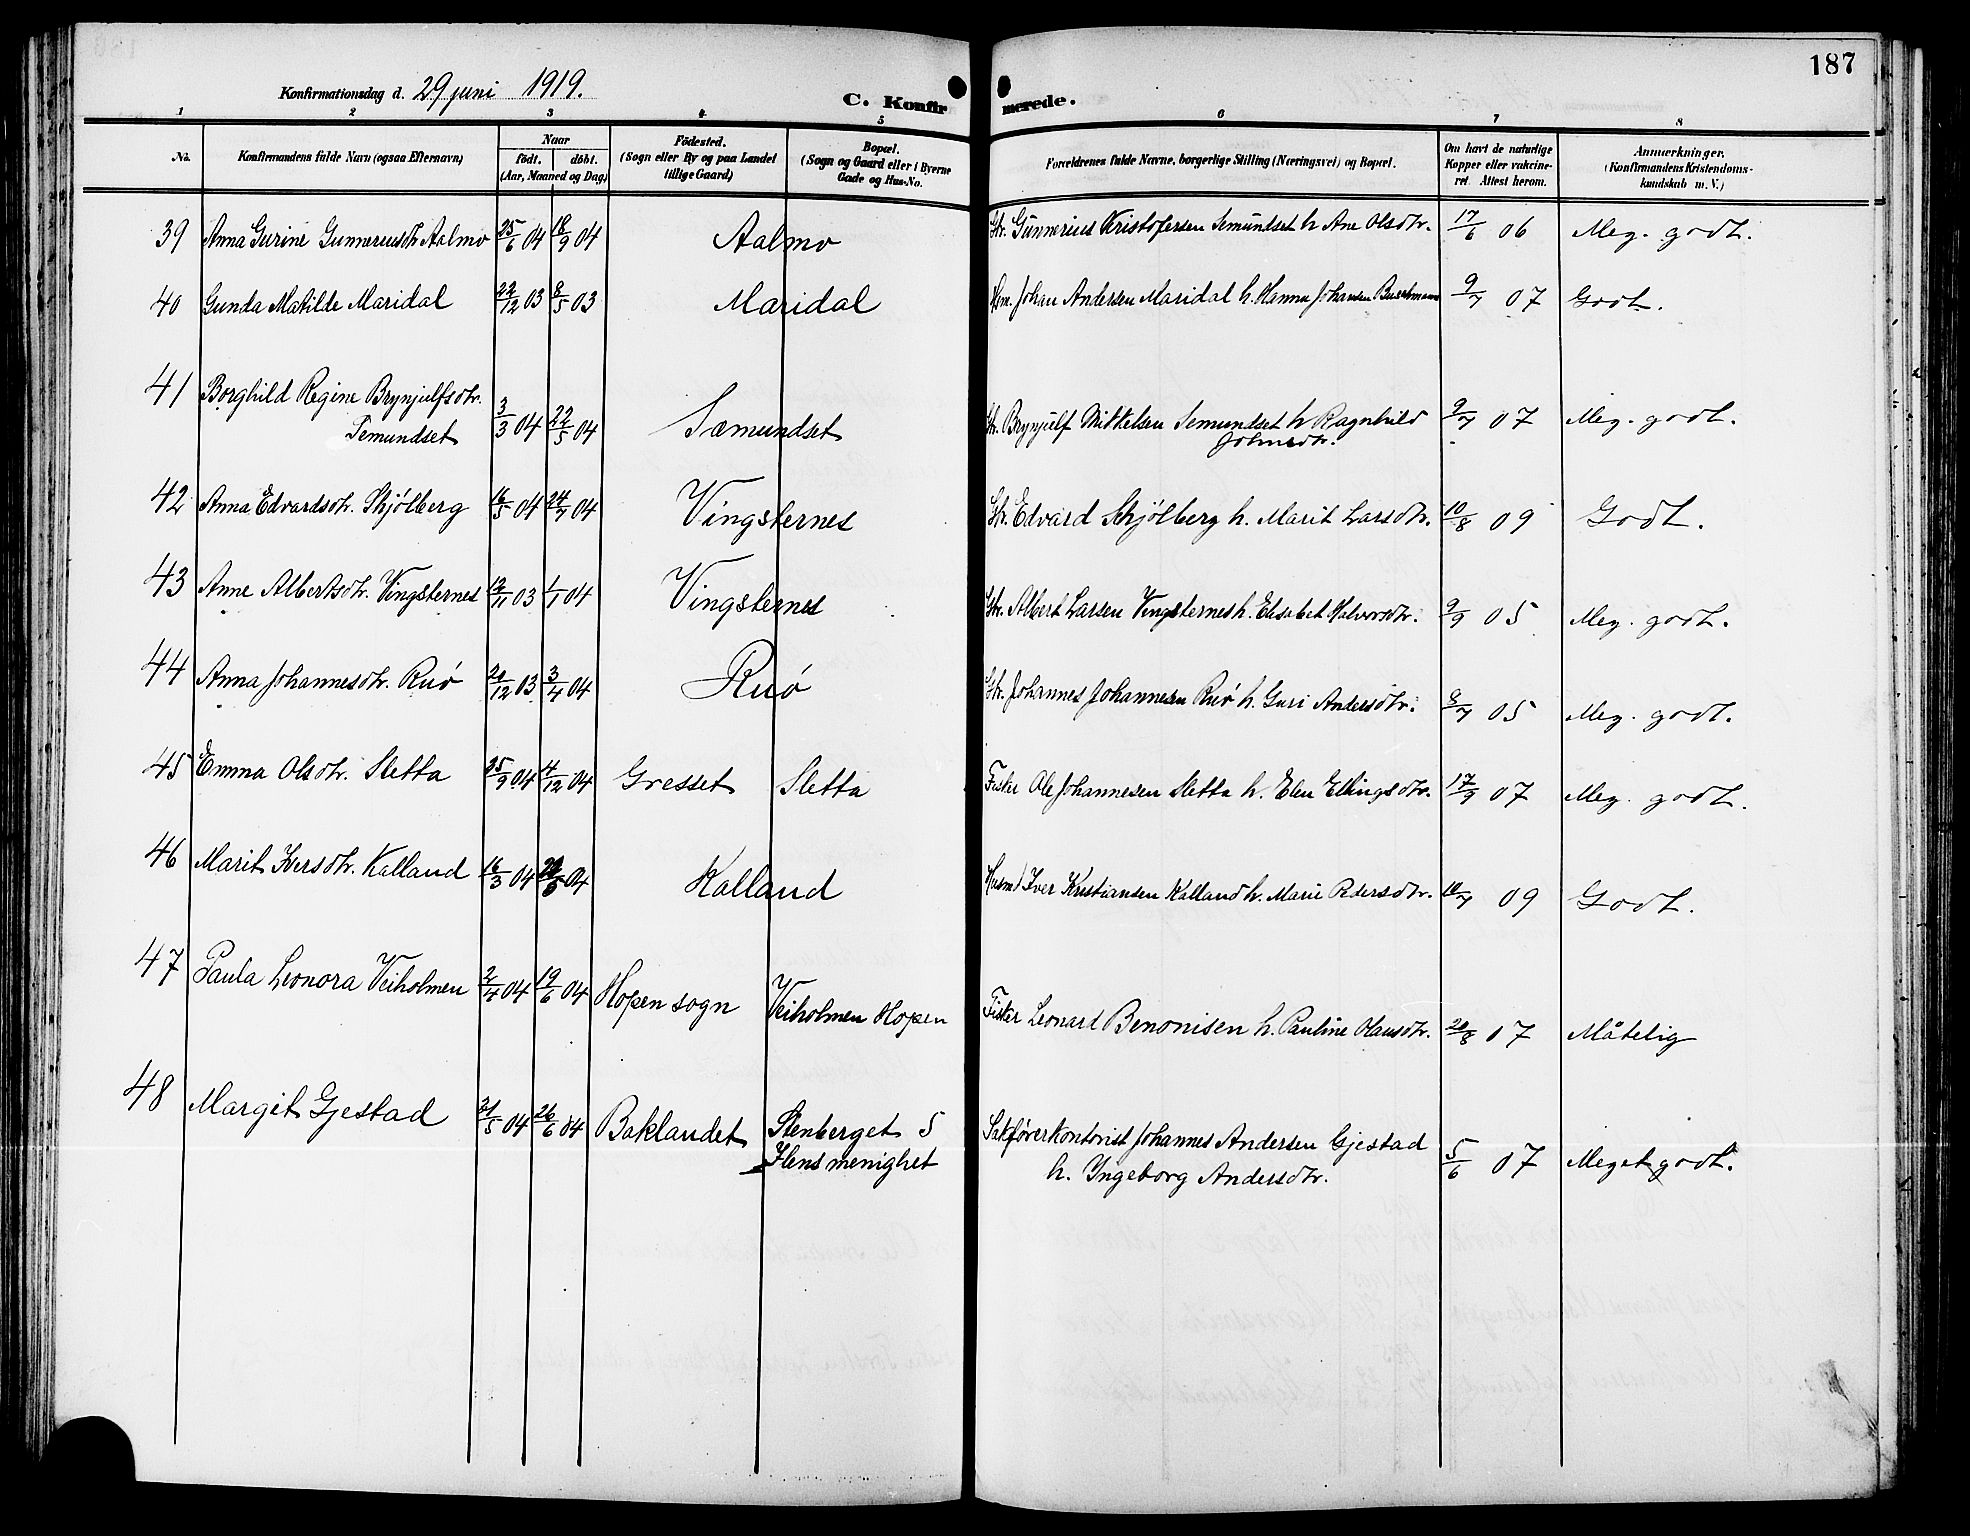 187
Konfirmationsdag d. 29 juni 1919.
C. Konfirmerede.
1 2 3 4 5 6 7 8
No. Konfirmandens fulde Navn (ogsaa Efternavn) Naar födt. döbt. (Aar, Maaned og Dag) Födested. (Sogn eller By og paa Landet tillige Gaard) Bopæl. (Sogn og Gaard eller i Byerne Gade og Hus-No. Forældrenes fulde Navne, borgerlige Stilling (Næringsvei) og Bopæl. Om havt de naturlige Kopper eller vakcineret. Attest herom. Anmærkninger. (Konfirmandens Kristendomskundskab m. V.)
39 Anna Gurine Gunneriusdtr Aalmo 25/6 04 18/9 04 Aalmo Str. Gunnerius Kristofersen Semundset h Ane Olsdtr. 17/6 06 Meg. godt.
40 Gunda Matilde Maridal 22/12 03 8/5 03 Maridal Hm. Johan Andersen Maridal h. Hanna Johansen 9/7 07 Godt.
41 Borghild Regine Brynjulfsdtr.
Semundset 3/3 04 22/5 04 Sæmundset Str. Brynjulf Mikkelsen Semundset h Ragnhild
Johnsdtr. 9/7 07 Meg. godt.
42 Anna Edvardsdtr. Skjölberg 16/5 04 24/7 04 Vingsternes Str. Edvard Skjölberg h. Marit Larsdtr. 10/8 09 Godt.
43 Anne Albertsdtr. Vingsternes 12/11 03 1/1 04 Vingsternes Str. Albert Larsen Vingsternes h. Elisabet Halvorsdtr. 9/9 05 Meg. godt.
44 Anna Johannesdtr. Ruø 20/12 03 3/4 04 Ruø Str. Johannes Johannesen Ruø h. Guri Andersdtr. 8/7 05 Meg. godt.
45 Emma Olsdtr. Sletta 25/9 04 4/12 04 Gresset Sletta Fisker Ole Johannesen Sletta h. Elen Ellingsdtr. 17/9 07 Meg. godt.
46 Marit Iversdtr. Kalland 16/3 04 04 Kalland Husmd Iver Kristiansen Kalland h. Marie Pedersdtr. 09 Godt.
47 Paula Leonora Veiholmen 2/4 04 19/6 04 Hopen sogn Veiholmen Hopen Fisker Leonard Benonisen h. Pauline Olausdtr. 20/8 07 Måtelig
48 Margit Gjestad 31/5 04 26/6 04 Baklandet Stenberget 5
Ilens menighet Sakförerkontorist Johannes Andersen Gjestad
h. Ingeborg Andersdtr. 5/6 07 Meget godt.